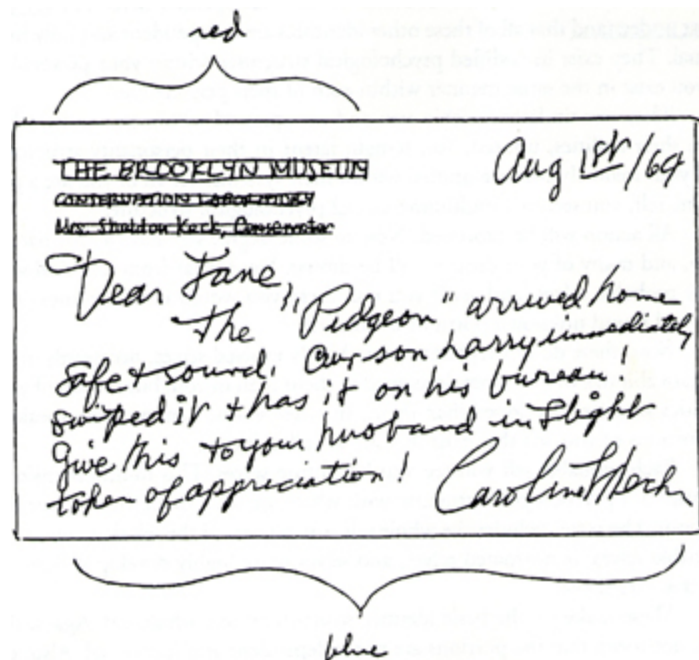 red
THE BROOKLYN MUSEUM
CONSERVATION LABORATORY
Mrs. Sheldon Keck, Conservator
Aug 1st/64
Dear Jane,
The "Pidgeon" arrived home
safe & sound. Our son Larry immediately
swiped it & has it on his bureau!
Give this to your husband in slight
token of appreciation!
Caroline
blue